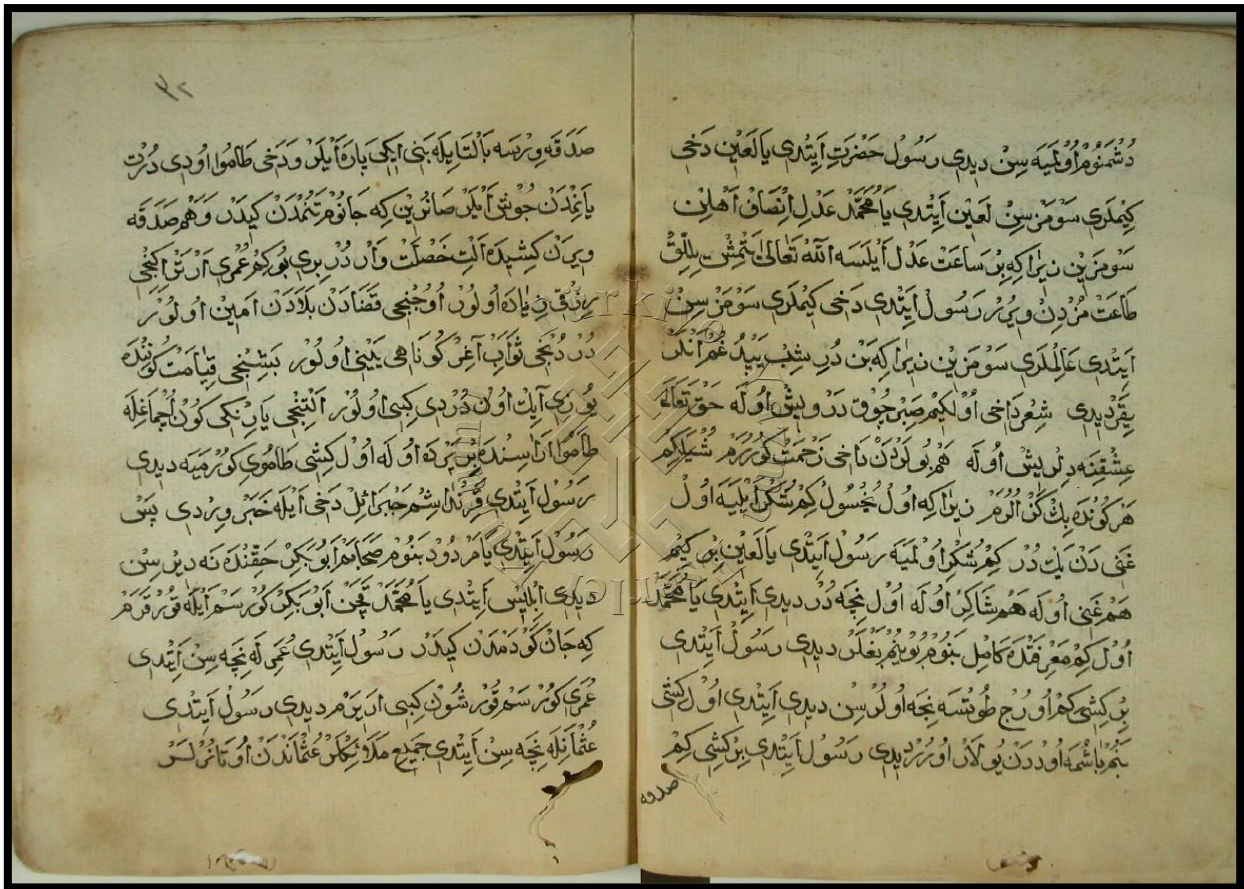 دُشْمَنُوم اُولميه سِنْ ديدى رسُولْ حَضْرَتِ اَيتْدى يا لَعِينْ دَخى
كِيملَرى سَوْمَزْ سِنْ لَعِينْ اَيتْدى يا مُحَمَّدْ عَدْلِ اِنْصَافْ اَهْلِينْ
سَوْمَزين زيرَا كِه بِرْ سَاعَتْ عَدْل اَيْلَسَه اَللّٰهُ تَعَالىٰ يتْمِشْ يِلْلِقْ
طَاعَتْ مُزْدِنْ ويرُرْ رَسُولْ اَيتْدى دَخى كِيملَرى سَوْمَزْ سِنْ
اَيتْدى عَالِملَرى سَوْمَزين زيرَا كِه بَنْ دُرِشِبْ
ديدى شِعْر دَاخى اُولكِيم صَبِرْ چُوق دَرْويشْ اُولَه حَقْ تَعَالَه
عِشْقِنَه دِلْريشْ اُولَه هَمْ بُولَردَنْ دَاخى زَحْمَتْ كورُرَمْ شُيْلَكِمْ
هَرْ كُونْدَه بِكْ كَزْ اُلُورَمْ زيرَا كِه اُولْ يُخْسُولْ كِمْ شُكْر اَيْلَيَه اُولْ
غَنى دَنْ يكْ دُرْ كِمْ شُكْر اُولْميَه رسُولْ اَيتْدى يا لَعِينْ بِر كِيمْ
هَمْ غَنى اُولَه هَمْ شَاكِرْ اُولَه اُولْ نِجَه دُرْ ديدى اَيتْدى يا مُحَمَّدْ
اُولْ كِمْ مَعْرِفَتْدَه كَامِلْ بَنُومْ بُويْنُمْ بَغْلَرْ ديدى رسُولْ اَيتْدى
بِرْ كِشى كِمْ اُورُجْ طُوتْسَه نِجَه اُولُرْ سِنْ ديدى اَيتْدى اُولْ كِشى
بَنُمْ بَاشُمَه اُوددَنْ يُولَارْ اُورُرْ ديدى رسُولْ اَيتْدى بِرْ كِشى كِمْ
صدقه
٣٢
صَدَقَه ويرْسَه بَالْتَايلَه بَنى اِيكى پَارَه اَيْلَرْ وَدَخى طَامُوا اُودى دُرْت
يَانُمْدَنْ جُوشْ اَيْلَرْ صَانُرين كِه جَانُومْ تَنُمْدَنْ كيدَرْ وَهَمْ صَدَقَه
ويرَنْ كِشيدَه اَلْتِ خَصْلَتْ وَارْ دُرْ بِرى بُوكِمْ عُمْرى اَرْتَرْ اِكِنْجى
رِزْقى زيَادَه اُولُورْ اُوچُنْجى قَضَادَنْ بَلَادَنْ اَمينْ اُولُورْ
دُرْدُنْجى ثَوَابْ آغِرْ كُونَاهى يَيْنى اُولُورْ بَشِنْجى قِيَامَتْ كُونِنْدَه
يُوزى آيْتْ اُونْ دُرْدى كِبى اُولُورْ اَلْتِنْجى يَارِنْكى كُونْ اُچْمَاغِلَه
طَامُوا اَرَاسِنْدَه بِرْ پَرْدَه اُولَه اُولْ كِشى طَامُوى كُورْميَه ديدى
رسُولْ اَيتْدى قَرِنْدَاشُمْ جَبْرَائِلْ دَخى اَيْلَه خَبَرْ ويرْدى پَسْ
رسُولْ اَيتْدى يا مَرْدُودْ بَنُومْ صَحَابَمْ اَبُو بَكِرْ حَقِنْدَه نَه ديرْسِنْ
ديدى اِبْلِيسْ اَيتْدى يا مُحَمَّدْ قَچَنْ اَبُو بَكِرْ كُورْسَمْ اَيْلَه قُورْقَرَمْ
كِه جَانْ كَوْدَمْدَنْ كيدَرْ رسُولْ اَيتْدى عُمَرلَه نِجَه سِنْ اَيتْدى
عُمَرى كُورْسَمْ قُورْشُونْ كِبى اَرِيرَمْ ديدى رسُولْ اَيتْدى
عُثْمَانِلَه نِجَه سِنْ اَيتْدى جَميع مَلَائِكَلَرْ عُثْمَانْدَنْ اُوتَانُرْلَرْ